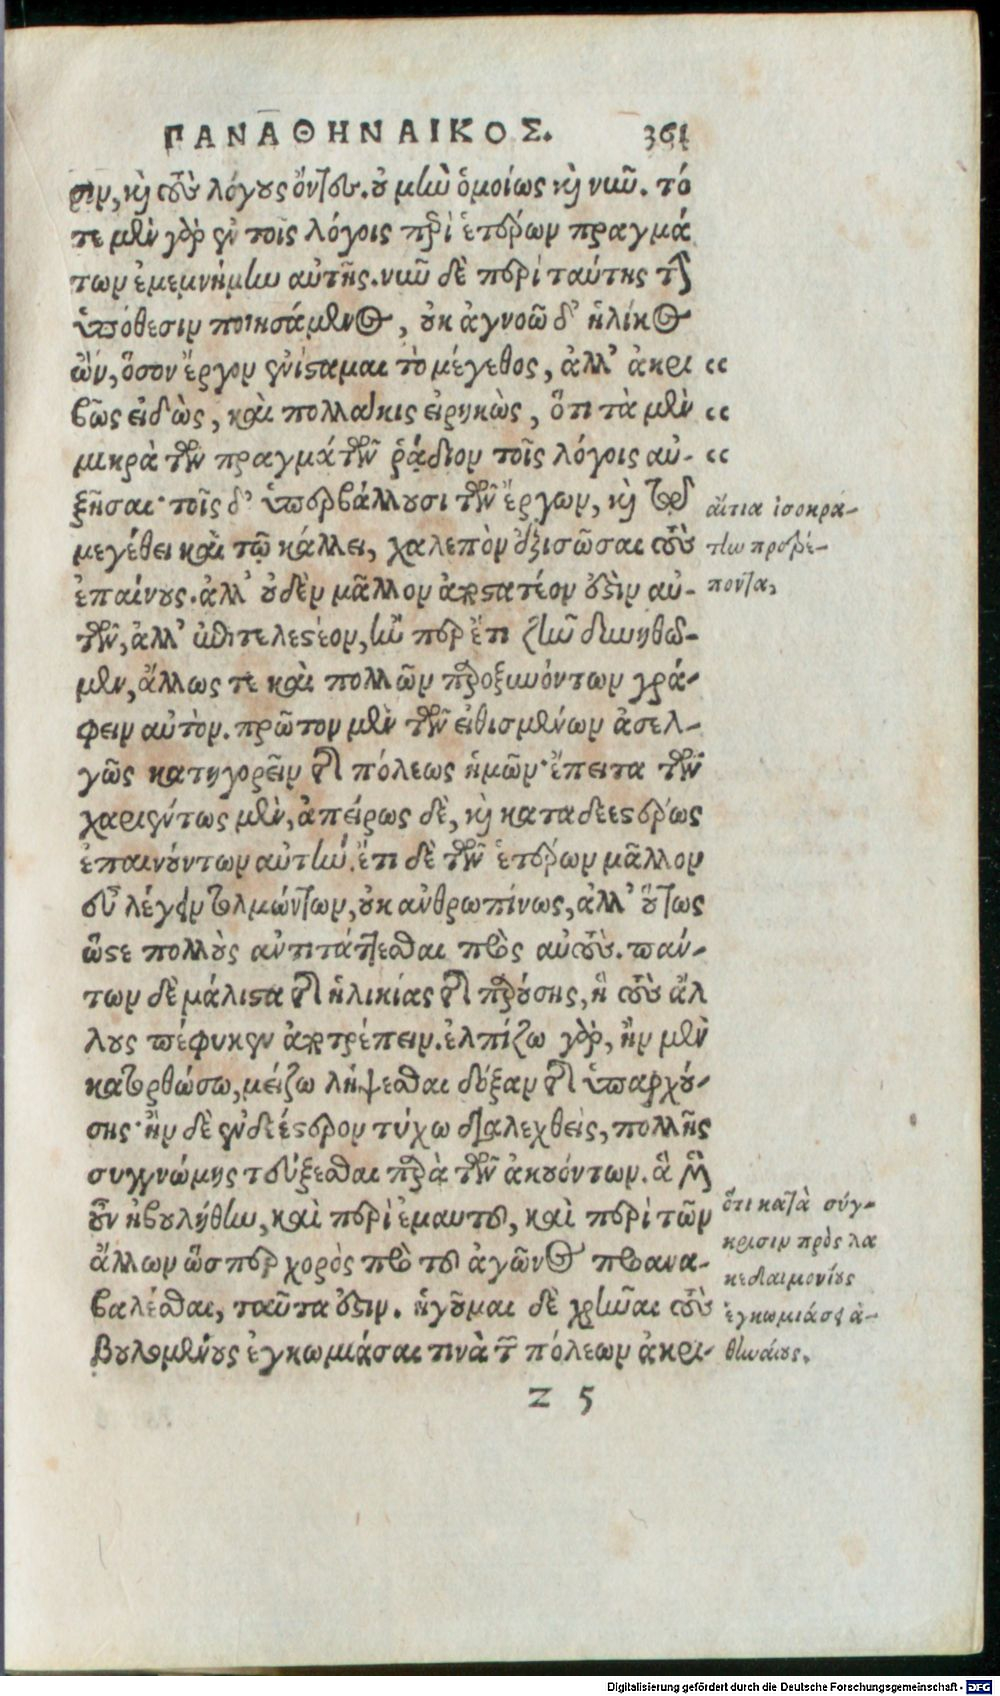 ΠΑΝΑΘΗΝΑΙΚΟΣ. 361
σιν, καὶ τοὺς λόγους ὄντας. οὐ μὴν ὁμοίως καὶ νῦν. τό
τε μὲν γὰρ ἐν τοῖς λόγοις περὶ ἑτέρων πραγμά
των ἐμεμνήμην αὐτῆς. νῦν δὲ περὶ ταύτης τὴν
ὑπόθεσιν ποιησάμενος, οὐκ ἀγνοῶ δ' ἡλίκος
ὢν, ὅσον ἔργον ἐνίσταμαι τὸ μέγεθος, ἀλλ' ἀκρι “
βῶς εἰδὼς, καὶ πολλάκις εἰρηκὼς, ὅτι τὰ μὲν “
μικρὰ τῶν πραγμάτων ῥᾴδιον τοῖς λόγοις αὐ- “
ξῆσαι· τοῖς δ' ὑπερβάλλουσι τῶν ἔργων, καὶ τῷ
μεγέθει καὶ τῷ κάλλει, χαλεπὸν ἐξισῶσαι τοὺς
ἐπαίνους. ἀλλ' οὐδὲν μᾶλλον ἀποστατέον ἐστὶν αὐ-
τῶν, ἀλλ' ἐπιτελεστέον, ἤν περ ἔτι ζῆν δυνηθῶ-
μεν, ἄλλως τε καὶ πολλῶν παροξυνόντων γρά-
φειν αὐτόν. πρῶτον μὲν τῶν εἰθισμένων ἀσελ-
γῶς κατηγορεῖν τῆς πόλεως ἡμῶν· ἔπειτα τῶν
χαριέντως μὲν, ἀπείρως δὲ, καὶ καταδεεστέρως
ἐπαινούντων αὐτήν. ἔτι δὲ τῶν ἑτέρων μᾶλλον
εὖ λέγειν τολμώντων, οὐκ ἀνθρωπίνως, ἀλλ' οὕτως
ὥστε πολλοὺς ἀντιτάττεσθαι πρὸς αὐτούς. πάν-
των δὲ μάλιστα τῆς ἡλικίας τῆς παρούσης, ἣ τοὺς ἄλ
λους πέφυκεν ἀποτρέπειν. ἐλπίζω γὰρ, ἢν μὲν
κατορθώσω, μείζω λήψεσθαι δόξαν τῆς ὑπαρχού-
σης· ἢν δὲ ἐνδεέστερον τύχω διαλεχθεὶς, πολλῆς
συγγνώμης τεύξεσθαι παρὰ τῶν ἀκουόντων. ἃ μὲν
οὖν ἠβουλήθην, καὶ περὶ ἐμαυτοῦ, καὶ περὶ τῶν
ἄλλων ὥσπερ χορὸς πρὸ τοῦ ἀγῶνος προανα-
βαλέσθαι, ταῦτα ἐστιν. ἡγοῦμαι δὲ χρῆναι τοὺς
βουλομένους ἐγκωμιάσαι τινὰ τῶν πόλεων ἀκρι-
αἴτια ἰσοκρά-
την προτρέ-
ποντα.
ὅτι κατὰ σύγ-
κρισιν πρὸς λα
κεδαιμονίους
ἐγκωμιάσει ἀ-
θηναίους.
Z 5
Digitalisierung gefördert durch die Deutsche Forschungsgemeinschaft - DFG